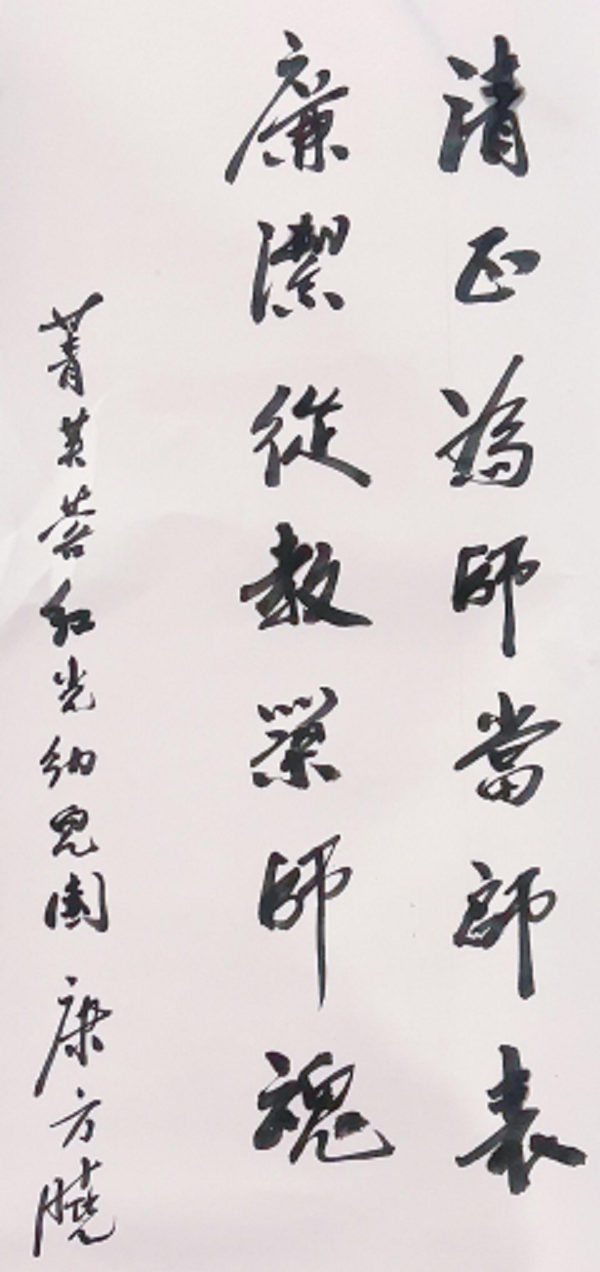 清正為師當師表
廉潔從教築師魂
菁英蓉紅光幼兒園 康方曉